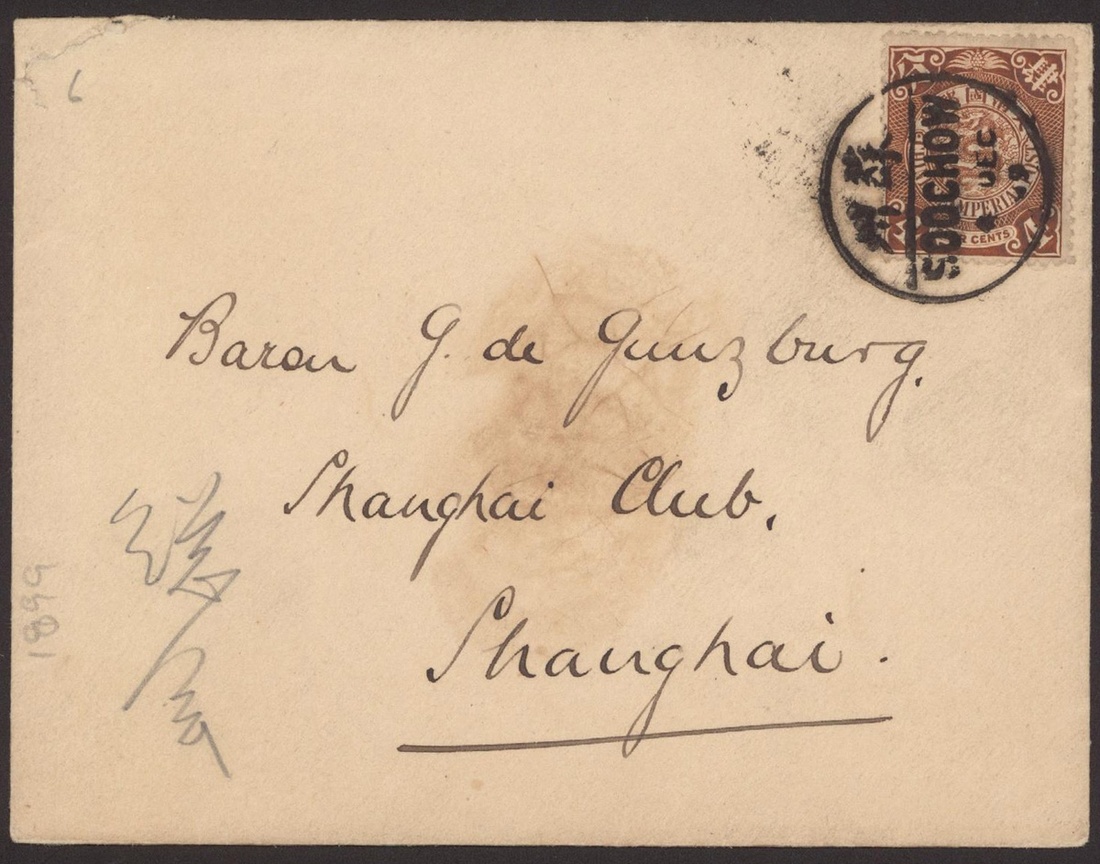 6
蘇州
SOOCHOW
DEC
IMPERIAL
R CENTS
4
Baron G. de Gunzburg.
Shanghai Club,
Shanghai.
1899